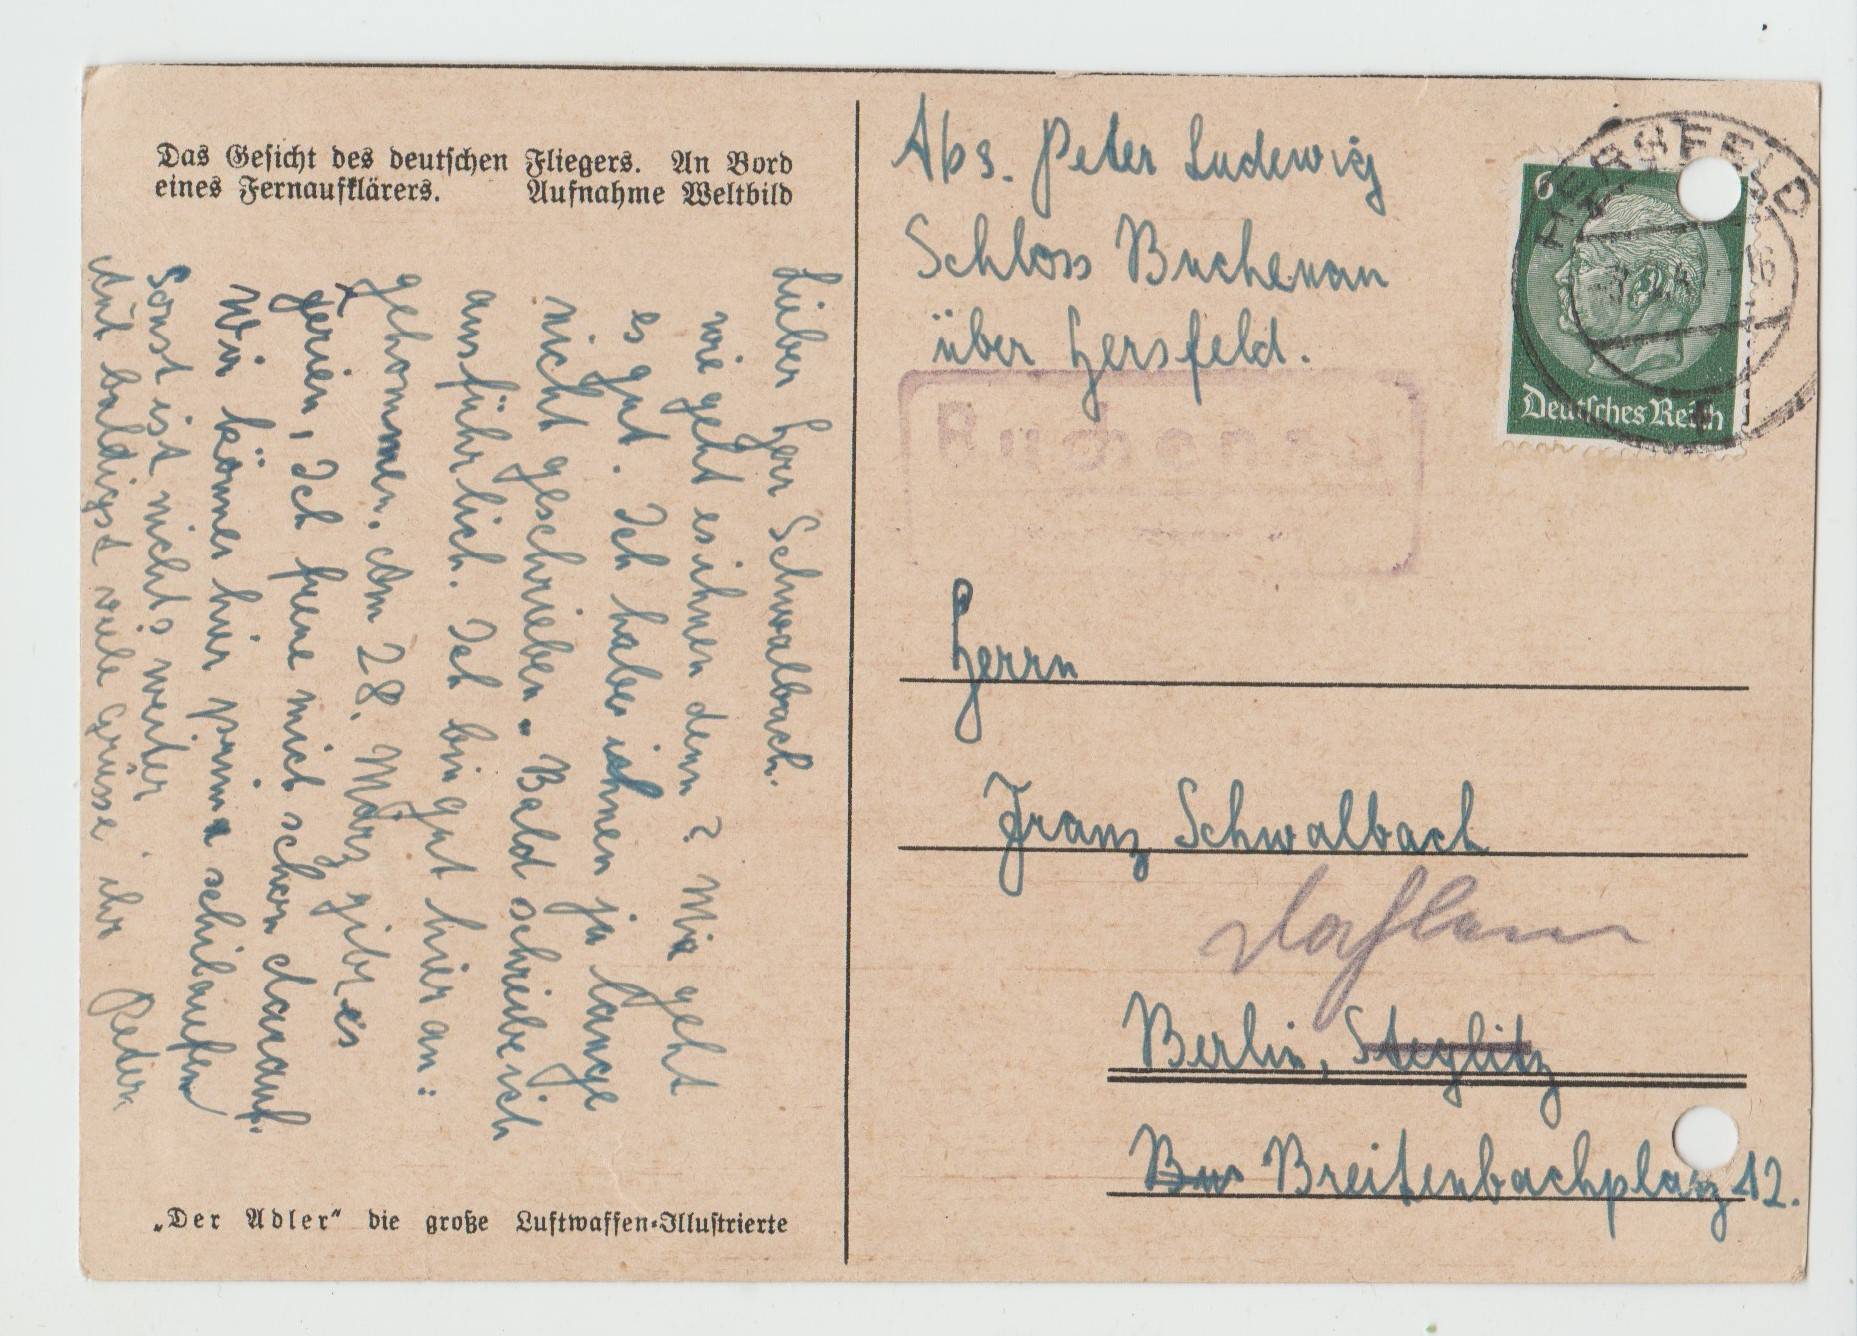 Das Gesicht des deutschen Fliegers. An Bord
eines Fernaufklärers. Aufnahme Weltbild
Lieber Herr Schwalbach.
wie geht es ihnen denn? Mir geht
es gut. Ich habe ihnen ja lange
nicht geschrieben. Bald schreibe ich
ausführlich. Ich bin gut hier an:
gekommen. Am 28. März gibt es
Ferien, Ich freue mich schon darauf.
Wir können hier prima schilaufen
Sonst ist nichts weiter.
Auf baldigst viele Grüsse ihr Peter
„Der Adler“ die große Luftwaffen-Illustrierte
Abs. Peter Ludewig
Schloss Buchenau
über Hersfeld.
Buchenau
HERSFELD
16
6
Deutsches Reich
Herrn
Franz Schwalbach
Dahlem
Berlin, Steglitz
Breitenbachplatz 12.